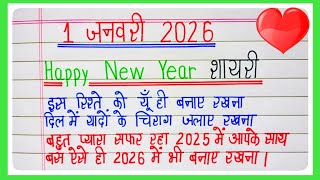 1 जनवरी 2026
Happy New Year शायरी
इस रिश्ते को यूँ ही बनाए रखना
दिल में यादों के चिराग जलाए रखना
बहुत प्यारा सफर रहा 2025 में आपके साथ
बस ऐसे ही 2026 में भी बनाए रखना।